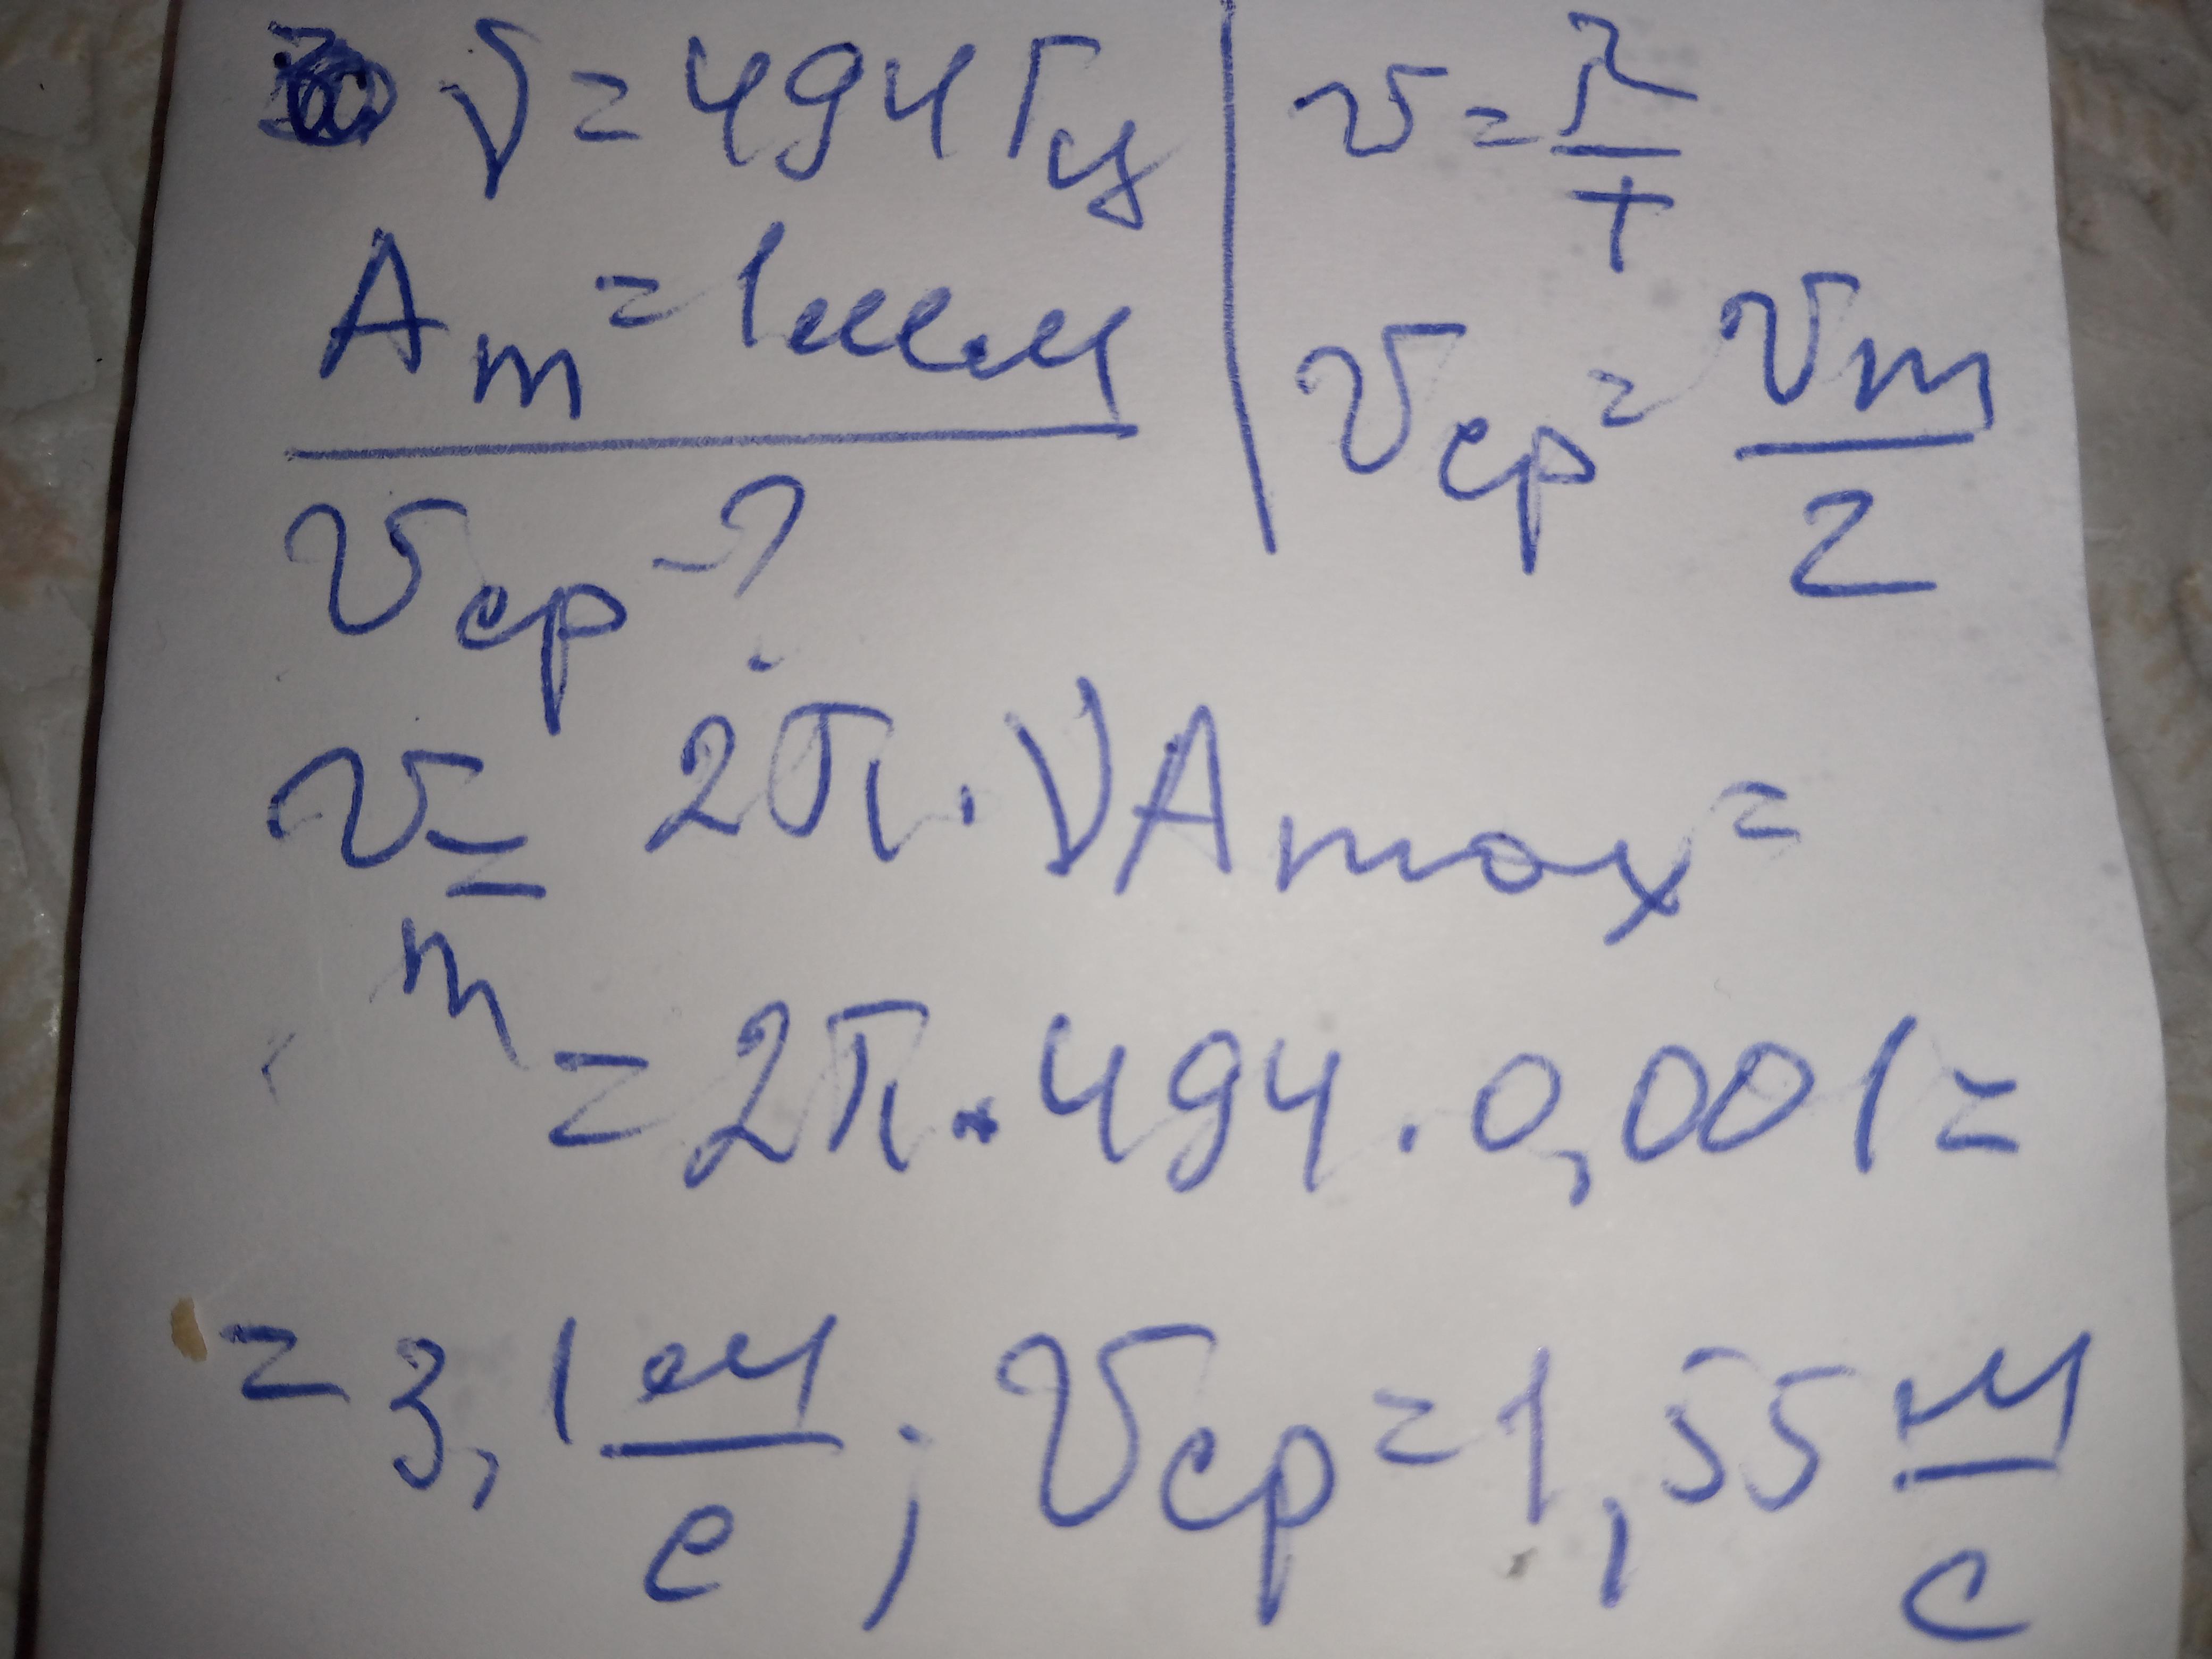 ν = 494 Гц
A_m = 1 мм
v_ср - ?
v = λ/T
v_ср = v_m/2
v_m = 2π · νA_max =
= 2π · 494 · 0,001 =
= 3,1 м/с; v_ср = 1,55 м/с